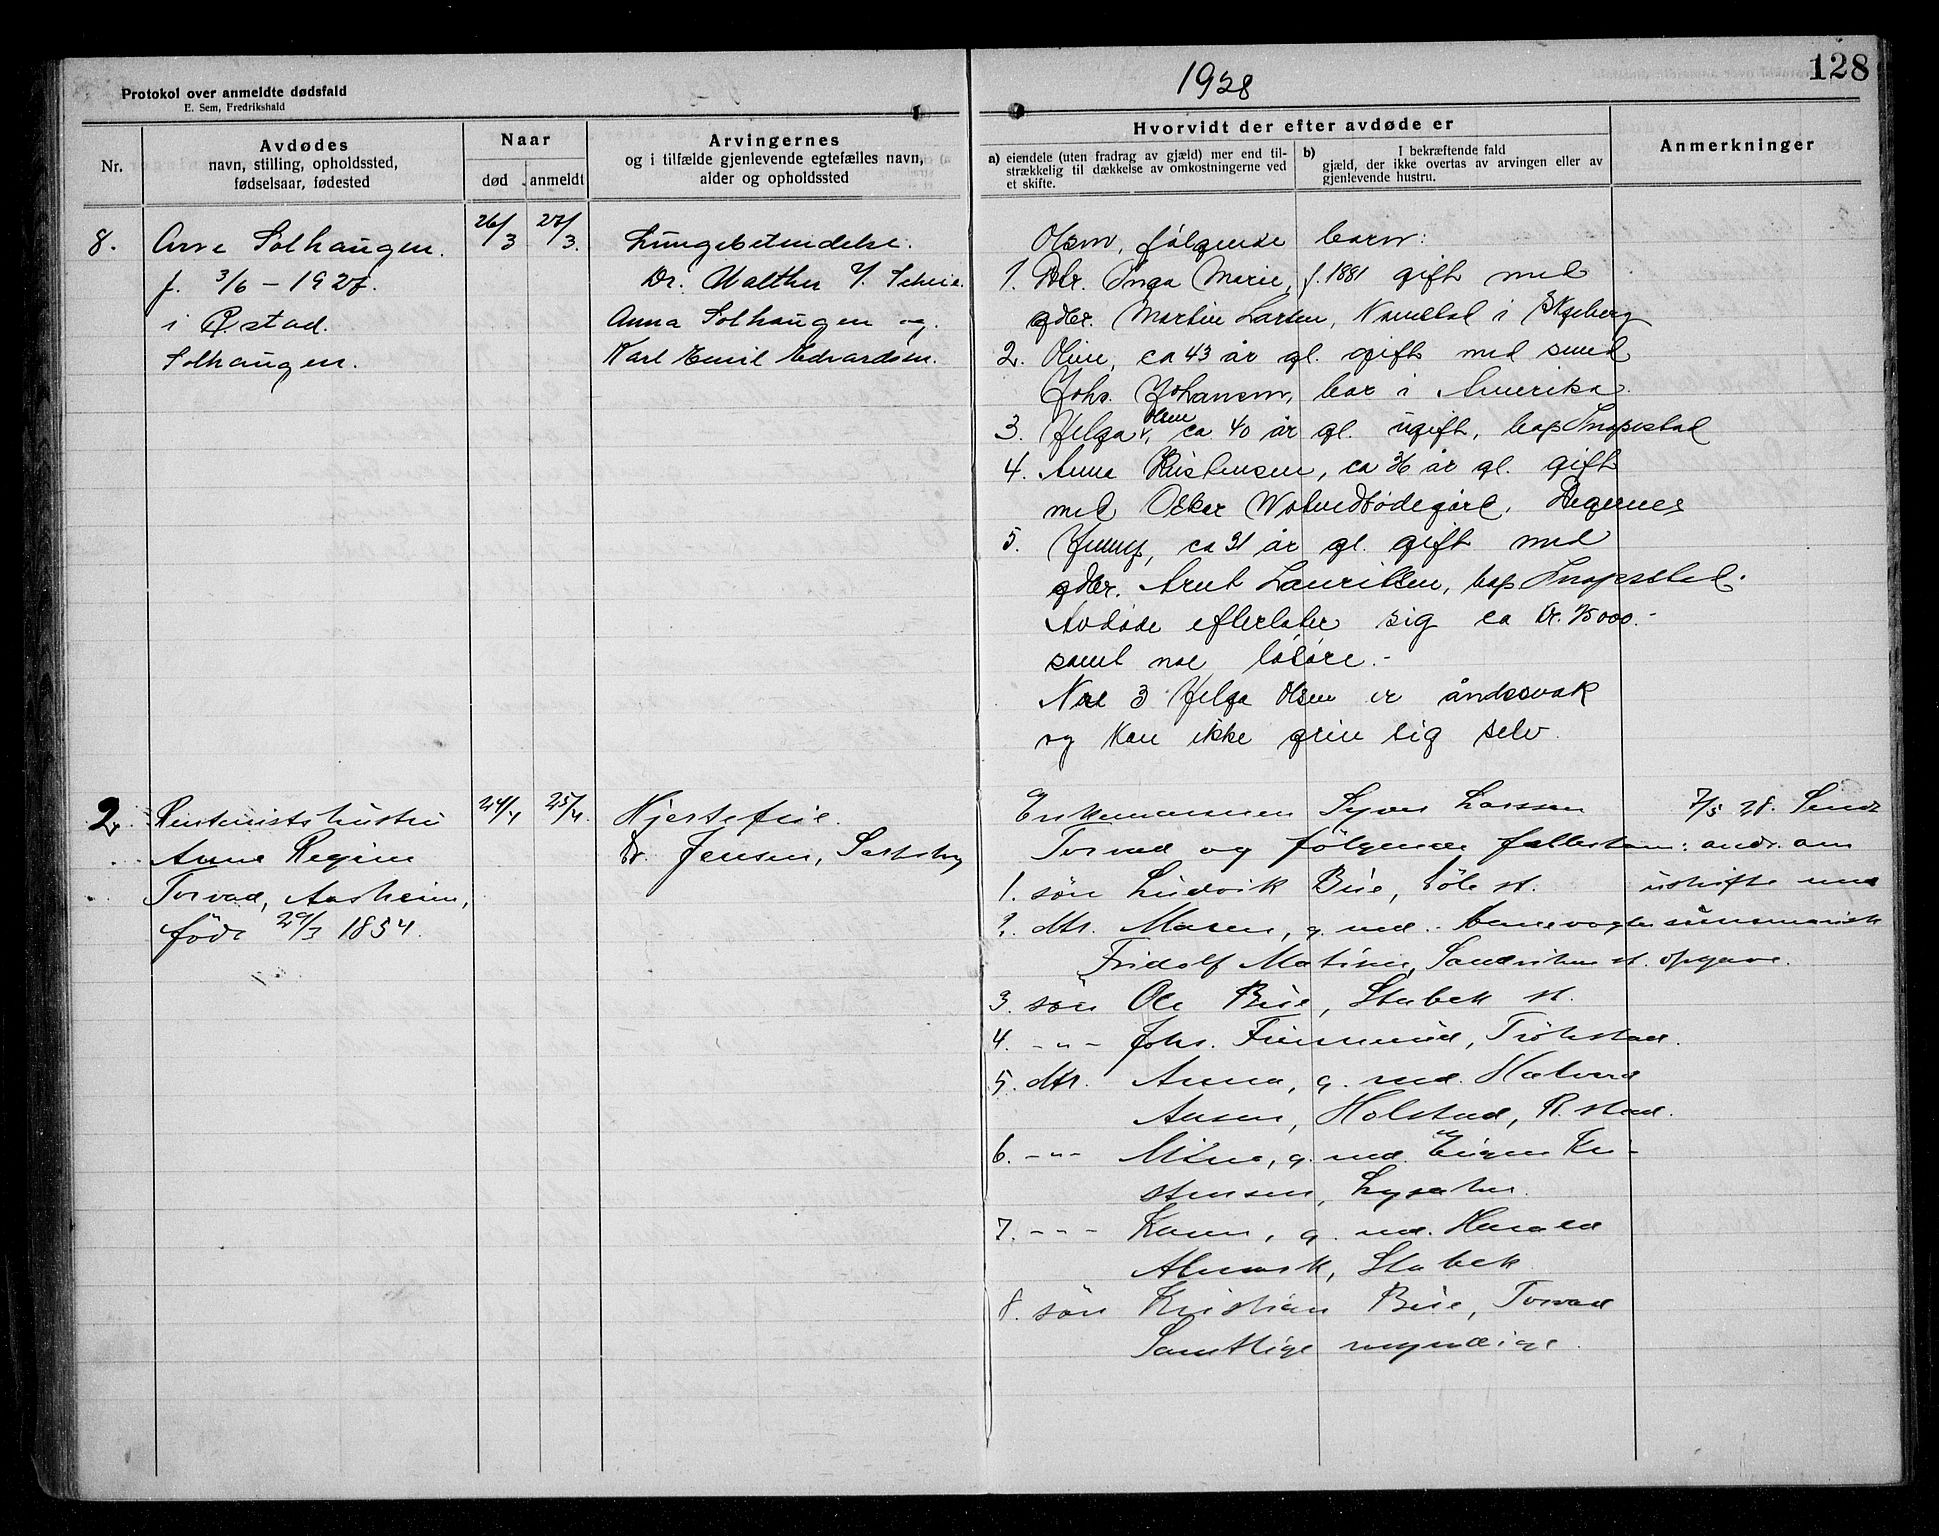 128
1928
Protokol over anmeldte dødsfald
E. Sem, Fredrikshald
Nr.
Avdødes
navn, stilling, opholdssted,
fødselsaar, fødested
Naar
død
anmeldt
Arvingernes
og i tilfælde gjenlevende egtefælles navn,
alder og opholdssted
Hvorvidt der efter avdøde er
a) eiendele (uten fradrag av gjæld) mer end til-
strækkelig til dækkelse av omkostningerne ved
et skifte.
b) I bekræftende fald
gjæld, der ikke overtas av arvingen eller av
gjenlevende hustru.
Anmerkninger
8. Arve Solhaugen. 26/3 27/3. Lungebetendelse.
f. 3/6 – 1927. Dr. Walther
i Østad. Anna Solhaugen og
Solhaugen. Karl Emil Edvardsen.
Olsen, følgende barn:
1. Dtr. Inga Marie, f. 1881 gift med
gdbr. Martin Larsen, i Skjeberg
2. Oline, ca 43 år gl. gift med smed
Johs. Johansen, bor i Amerika.
3. Helga Olsen, ca 40 år gl. ugift, bop
4. Anna Kristensen, ca 36 år gl. gift
med Oskar Degernes
5. Jenny, ca 31 år gl. gift med
gdbr. Arnt Lauritsen, bop
Avdøde efterlater sig ca kr. 15000.-
samt noe løsøre.-
No 3 Helga Olsen er åndssvak
og kan ikke greie sig selv.
2. hustru 24/4 25/4. Hjertefeil.
Anne Regine Dr. Jensen, Sarpsborg
Torvad, Aasheim,
født 29/3 1854.
Enkemannen Syver Larssen 7/5 28. Sendt
Torvad og følgende fellesbarn: andr. om
1. søn Ludvik Bue, st. utskifte med
2. dtr. Maren, g. med. banevogter summarisk
Fridolf Sandviken st. opgave.
3. søn Ole Bue, Stabek st.
4. -"- Johs. Trøkstad.
5. dtr. Anna, g. med. Halvard
Holstad, R.stad.
6. -"- g. med. Eugen Kri-
stensen, Lysaker.
7. -"- Karen, g. med. Harald
Stabek.
8. søn Kristian Bue, Torvad
Samtlige myndige.